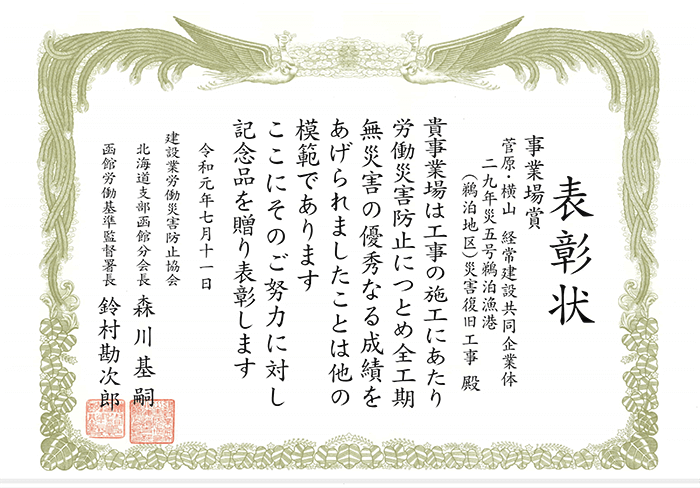 表彰状
事業場賞
菅原・横山 経常建設共同企業体
二九年災五号鵜泊漁港
(鵜泊地区)災害復旧工事 殿
貴事業場は工事の施工にあたり
労働災害防止につとめ全工期
無災害の優秀なる成績を
あげられましたことは他の
模範であります
ここにそのご努力に対し
記念品を贈り表彰します
令和元年七月十一日
建設業労働災害防止協会
北海道支部函館分会長 森川基嗣
函館労働基準監督署長 鈴村勘次郎